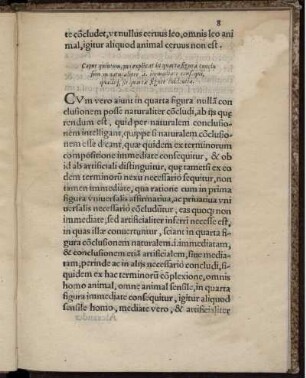 8
te cōcludet, vt nullus ceruus leo, omnis leo ani
mal, igitur aliquod animal ceruus non est.
Caput quintum, qui explicat in quarta figura conclu
sionem naturaliter
CVm vero aiunt in quarta figura nullā con
clusionem posse naturaliter cōcludi, ab ijs quę
rendum est, quid per naturalem conclusionem
intelligant, quippe si naturalem cōclusionem
esse dicant, quæ quidem ex terminorum
compositione immediate consequitur, & ob
id ab artificiali distinguitur, quę tametsi ex eo
dem terminorū nexu necessario sequitur, non
tamen immediate, qua ratione cum in prima
figura vniuersalis affirmatiua, ac priuatiua vni
uersalis necessario cōcludūtur, eas quoq; non
immediate, sed artificialiter inserri necesse est,
in quas illæ conuertuntur, sciant in quarta fi
gura cōclusionem naturalem .i. immediatam,
& conclusionem etiā artificialem, siue media-
tam, perinde ac in alijs necessario concludi, si-
quidem ex hac terminorū cōplexione, omnis
homo animal, omne animal sensile, in quarta
figura immediate consequitur, igitur aliquod
sensile homo, mediate vero, & artificialiter